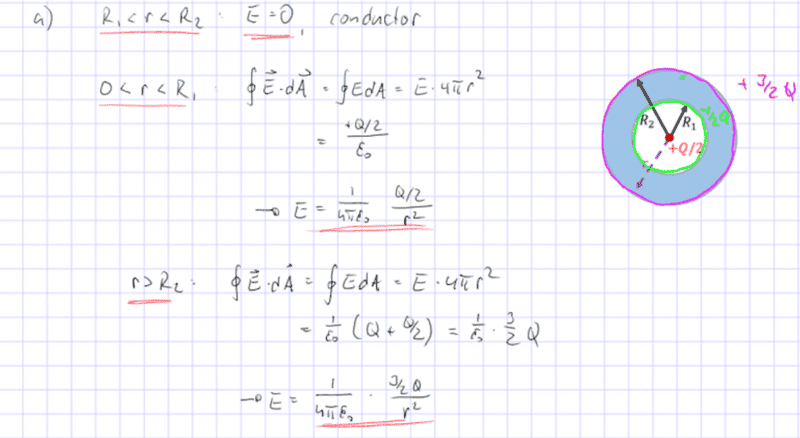 a) R₁ < r < R₂ : E = 0, conductor
0 < r < R₁ : ∮ E⃗ · dA⃗ = ∮ E dA = E · 4π r²
= +Q/2 / ε₀
→ E = 1/4πε₀ Q/2 / r²
r > R₂ : ∮ E⃗ · dA⃗ = ∮ E dA = E · 4π r²
= 1/ε₀ (Q + Q/2) = 1/ε₀ · 3/2 Q
→ E = 1/4πε₀ · 3/2 Q / r²
+ 3/2 Q
-1/2 Q
R₂
R₁
+Q/2